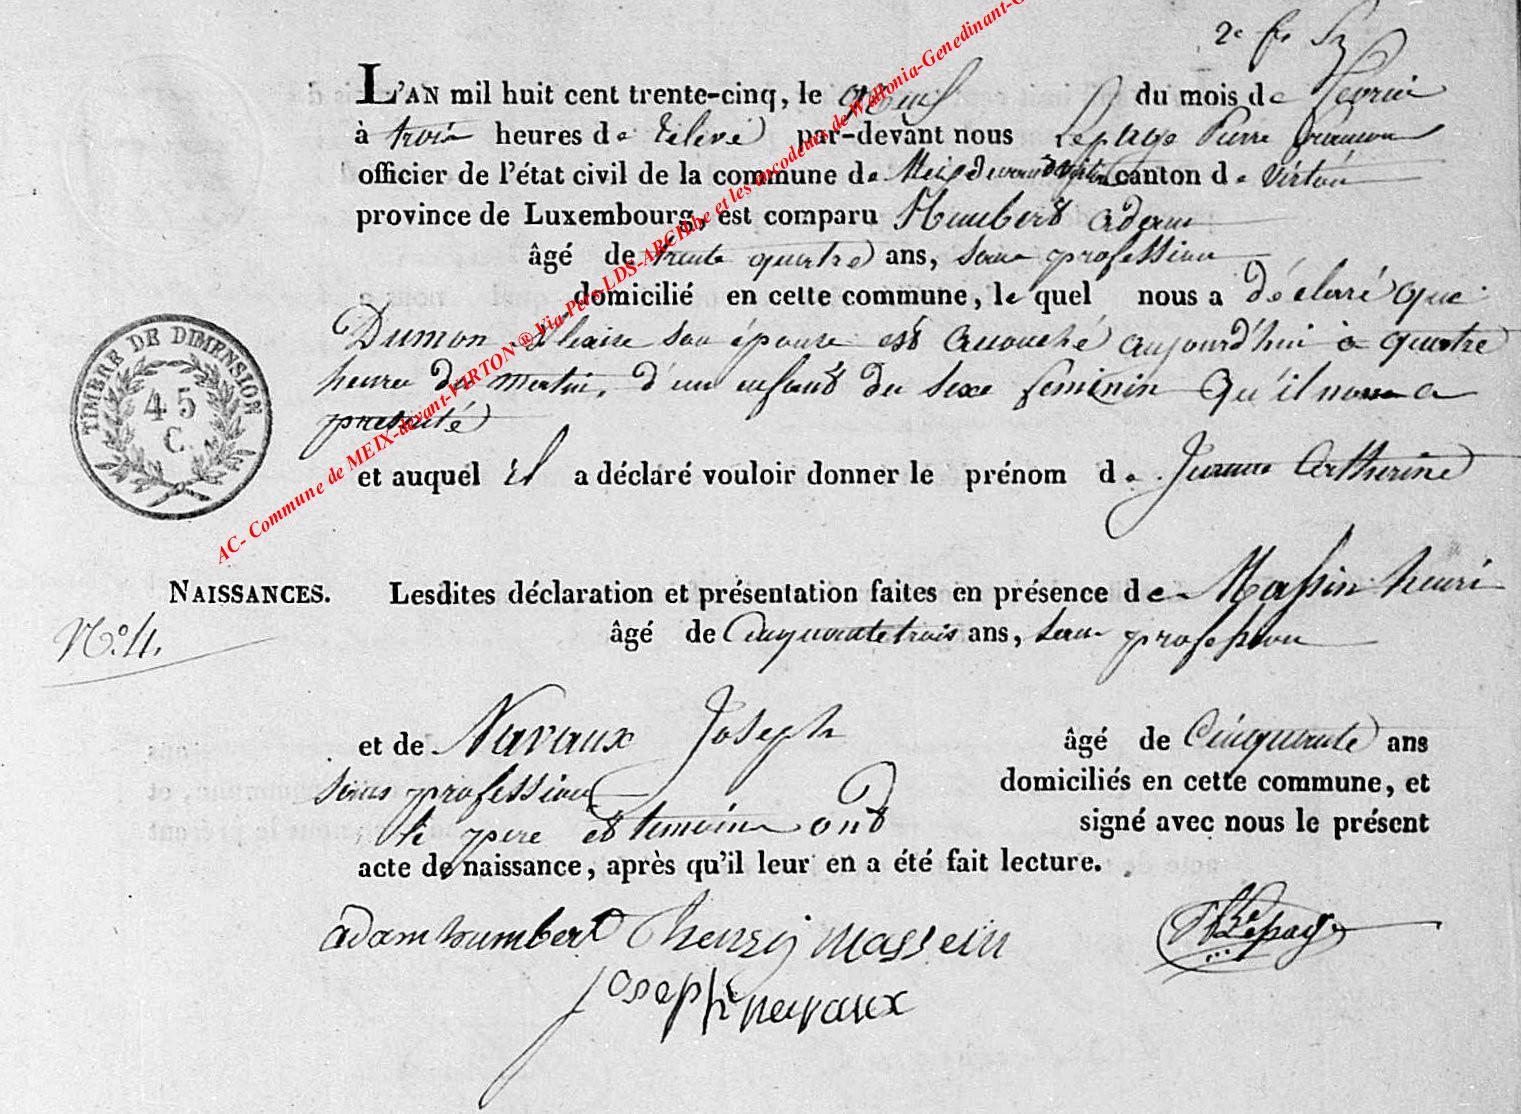 2e
L'AN mil huit cent trente-cinq, le neuf du mois de fevrier
à trois heures de relevé par-devant nous Lepage Pierre
officier de l'état civil de la commune de Meix devant Virton canton de Virton
province de Luxembourg, est comparu Humbert Adam
âgé de trente quatre ans, sans profession
domicilié en cette commune, le quel nous a déclaré que
Dumon son épouse est accouché aujourd'hui à quatre
heures du matin, d'un enfant du sexe feminin qu'il nous a
presenté
et auquel il a déclaré vouloir donner le prénom de Jeanne Catherine
NAISSANCES. Lesdites déclaration et présentation faites en présence de Massin henri
N.o 4. âgé de Cinquante trois ans, sans profession
et de Navaux Joseph âgé de Cinquante ans
sans profession domiciliés en cette commune, et
le pere et temoins ont signé avec nous le présent
acte de naissance, après qu'il leur en a été fait lecture.
adam humbert henry massein Lepage
joseph navaux
TIMBRE DE DIMENSION
45
C.
AC- Commune de MEIX-devant-VIRTON ® Via-Pers-LDS-ARCH.be et les encodeurs de Wallonia-Genedinant-